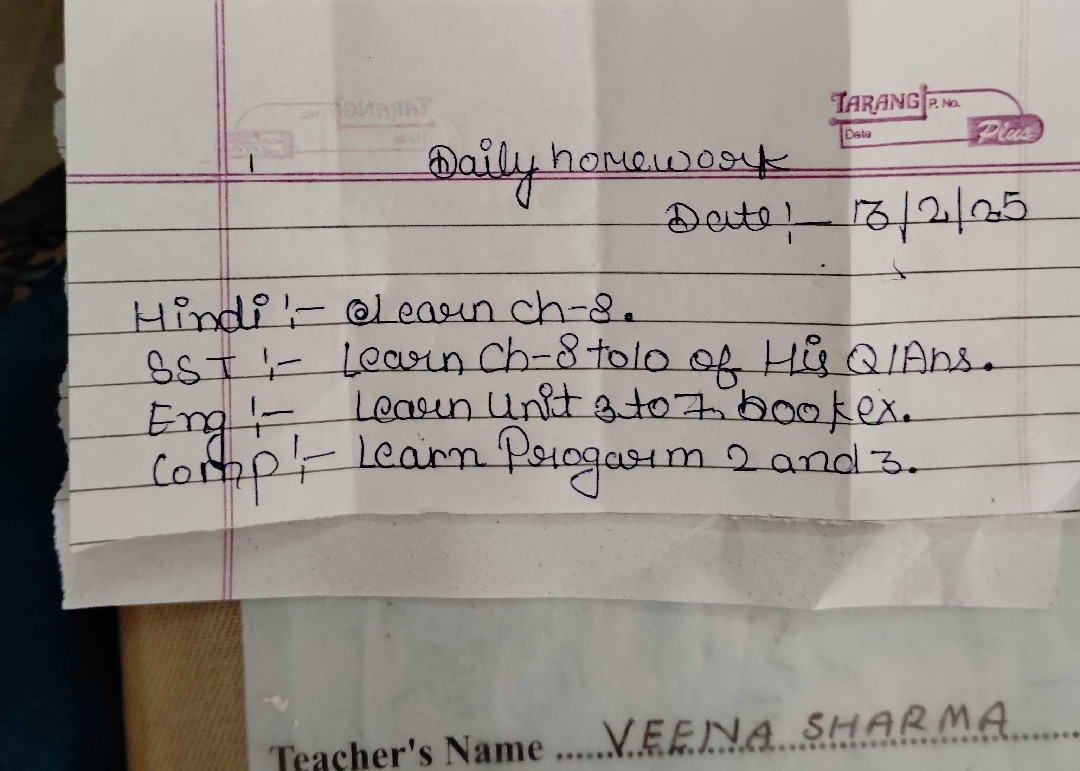 TARANG P. No.
Date Plus
Daily homework
Date :- 13/2/25
Hindi :- Learn ch-8.
SST :- Learn Ch-8 to 10 of His Q/Ans.
Eng :- Learn Unit 3 to 7 book ex.
Comp :- Learn Progarm 2 and 3.
Teacher's Name ...... VEENA SHARMA ......